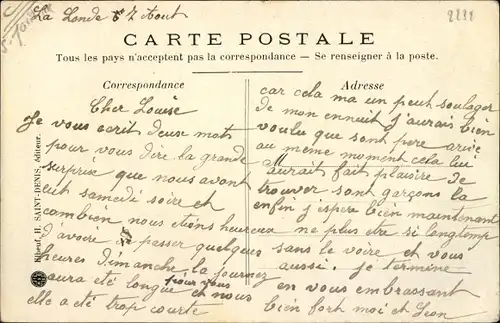 La Londe le 7 Aout
2221
CARTE POSTALE
Tous les pays n'acceptent pas la correspondance — Se renseigner à la poste.
Correspondance
Cher Louise
Je vous écrit deux mots
pour vous dire la grande
surprise que nous avont
eut samedé soire et
combien nous etions heureux
d'avoire passer quelques
heures dimanche la journez
aura eté longue pour vous et nous
elle a eté trop courte
Adresse
car cela ma un peut soulager
de mon ennuit j'aurais bien
voulu que sont pere arive
au meme moment cela lui
aurait fait plaisire de
trouver sont garçons la
enfin j'espere bien maintenant
ne plus etre si longtemp
sans le voire et vous
aussi. Je termine
en vous embrassant
bien fort moi et Leon
Elbeuf, H. SAINT-DENIS, éditeur.